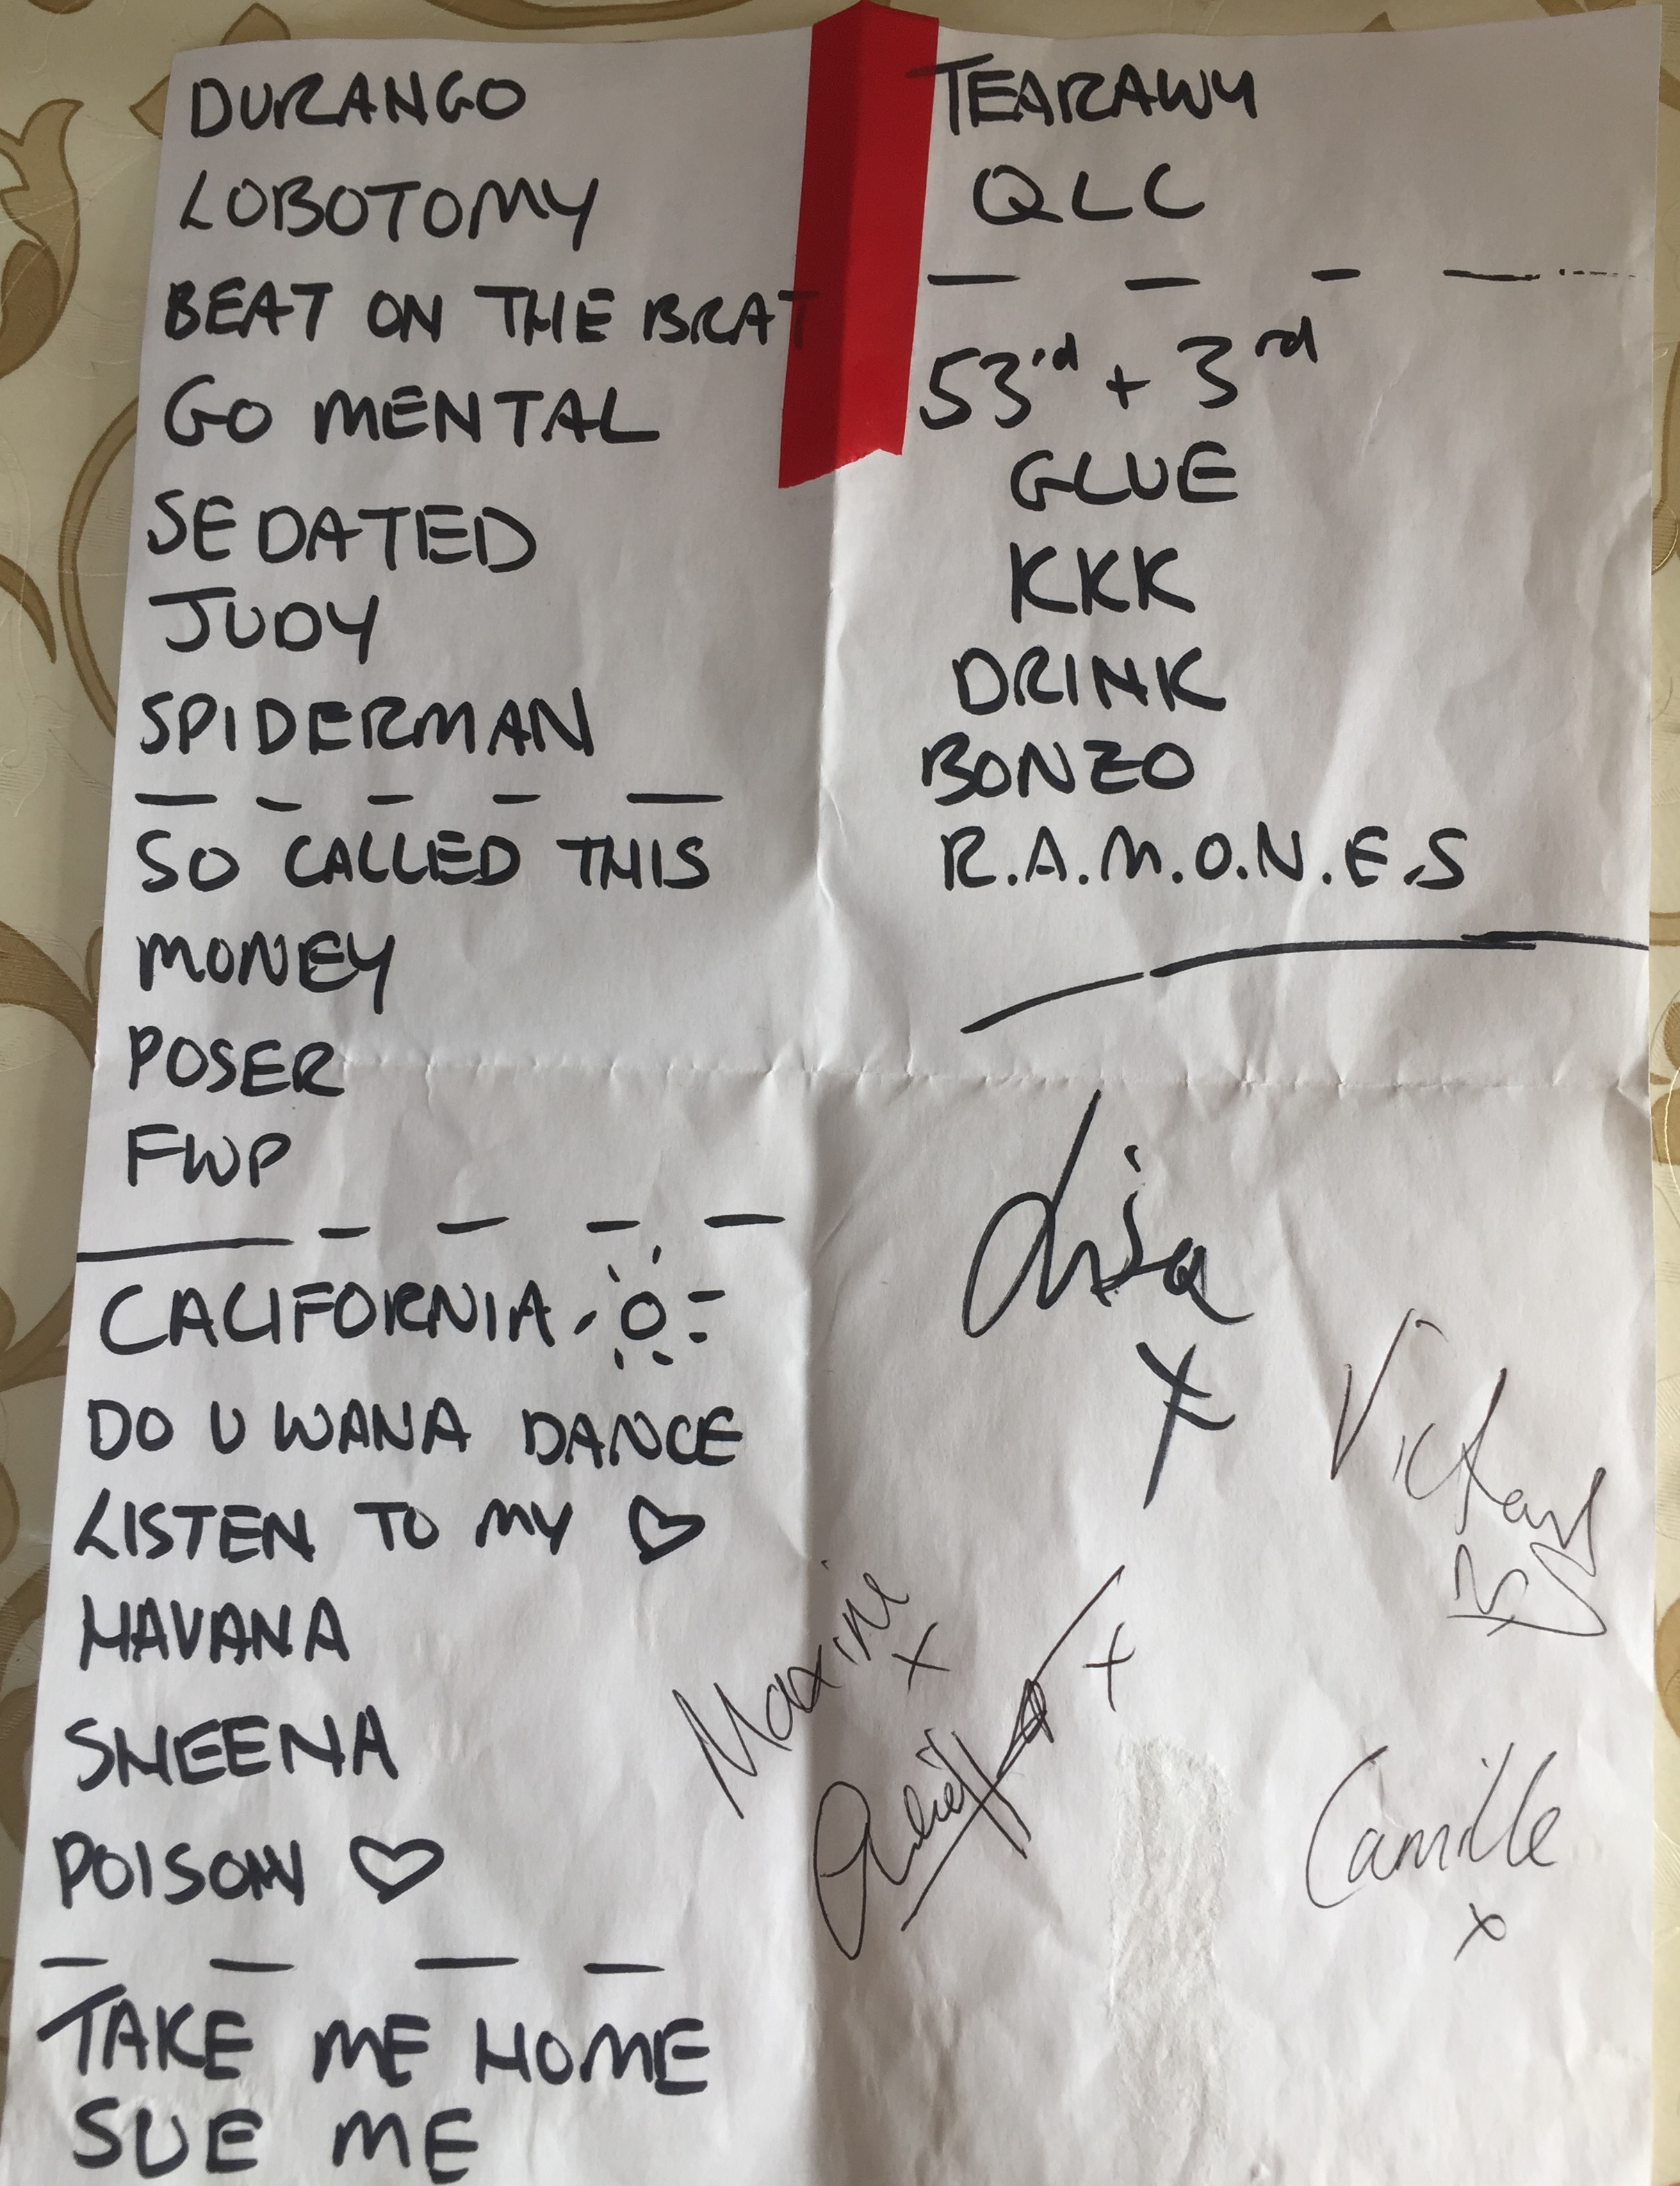 DURANGO
LOBOTOMY
BEAT ON THE BRAT
GO MENTAL
SEDATED
JUDY
SPIDERMAN
SO CALLED THIS
MONEY
POSER
FWP
CALIFORNIA
DO U WANA DANCE
LISTEN TO MY ♡
HAVANA
SHEENA
POISON ♡
TAKE ME HOME
SUE ME
TEARAWY
QLC
53rd + 3rd
GLUE
KKK
DRINK
BONZO
R.A.M.O.N.E.S
Lisa
x
Maxine
x
x
Camille
x